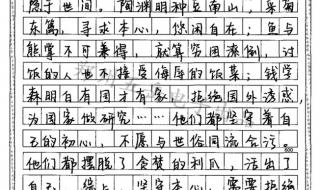 隐于世间。陶渊明种豆南山，采菊
东篱，寻求本心，悠闲自在；鱼与
熊掌不可兼得，就算穷困潦倒，讨
饭的人也不接受侮辱的饭菜；钱学
森明白有国才有家，拒绝国外诱惑，
为国家做研究……他们都坚守着自
己的初心，不愿与世俗同流合污。
600
他们都摆脱了贪婪的利爪，活出了
自己。综上，坚守本心，需要拒绝